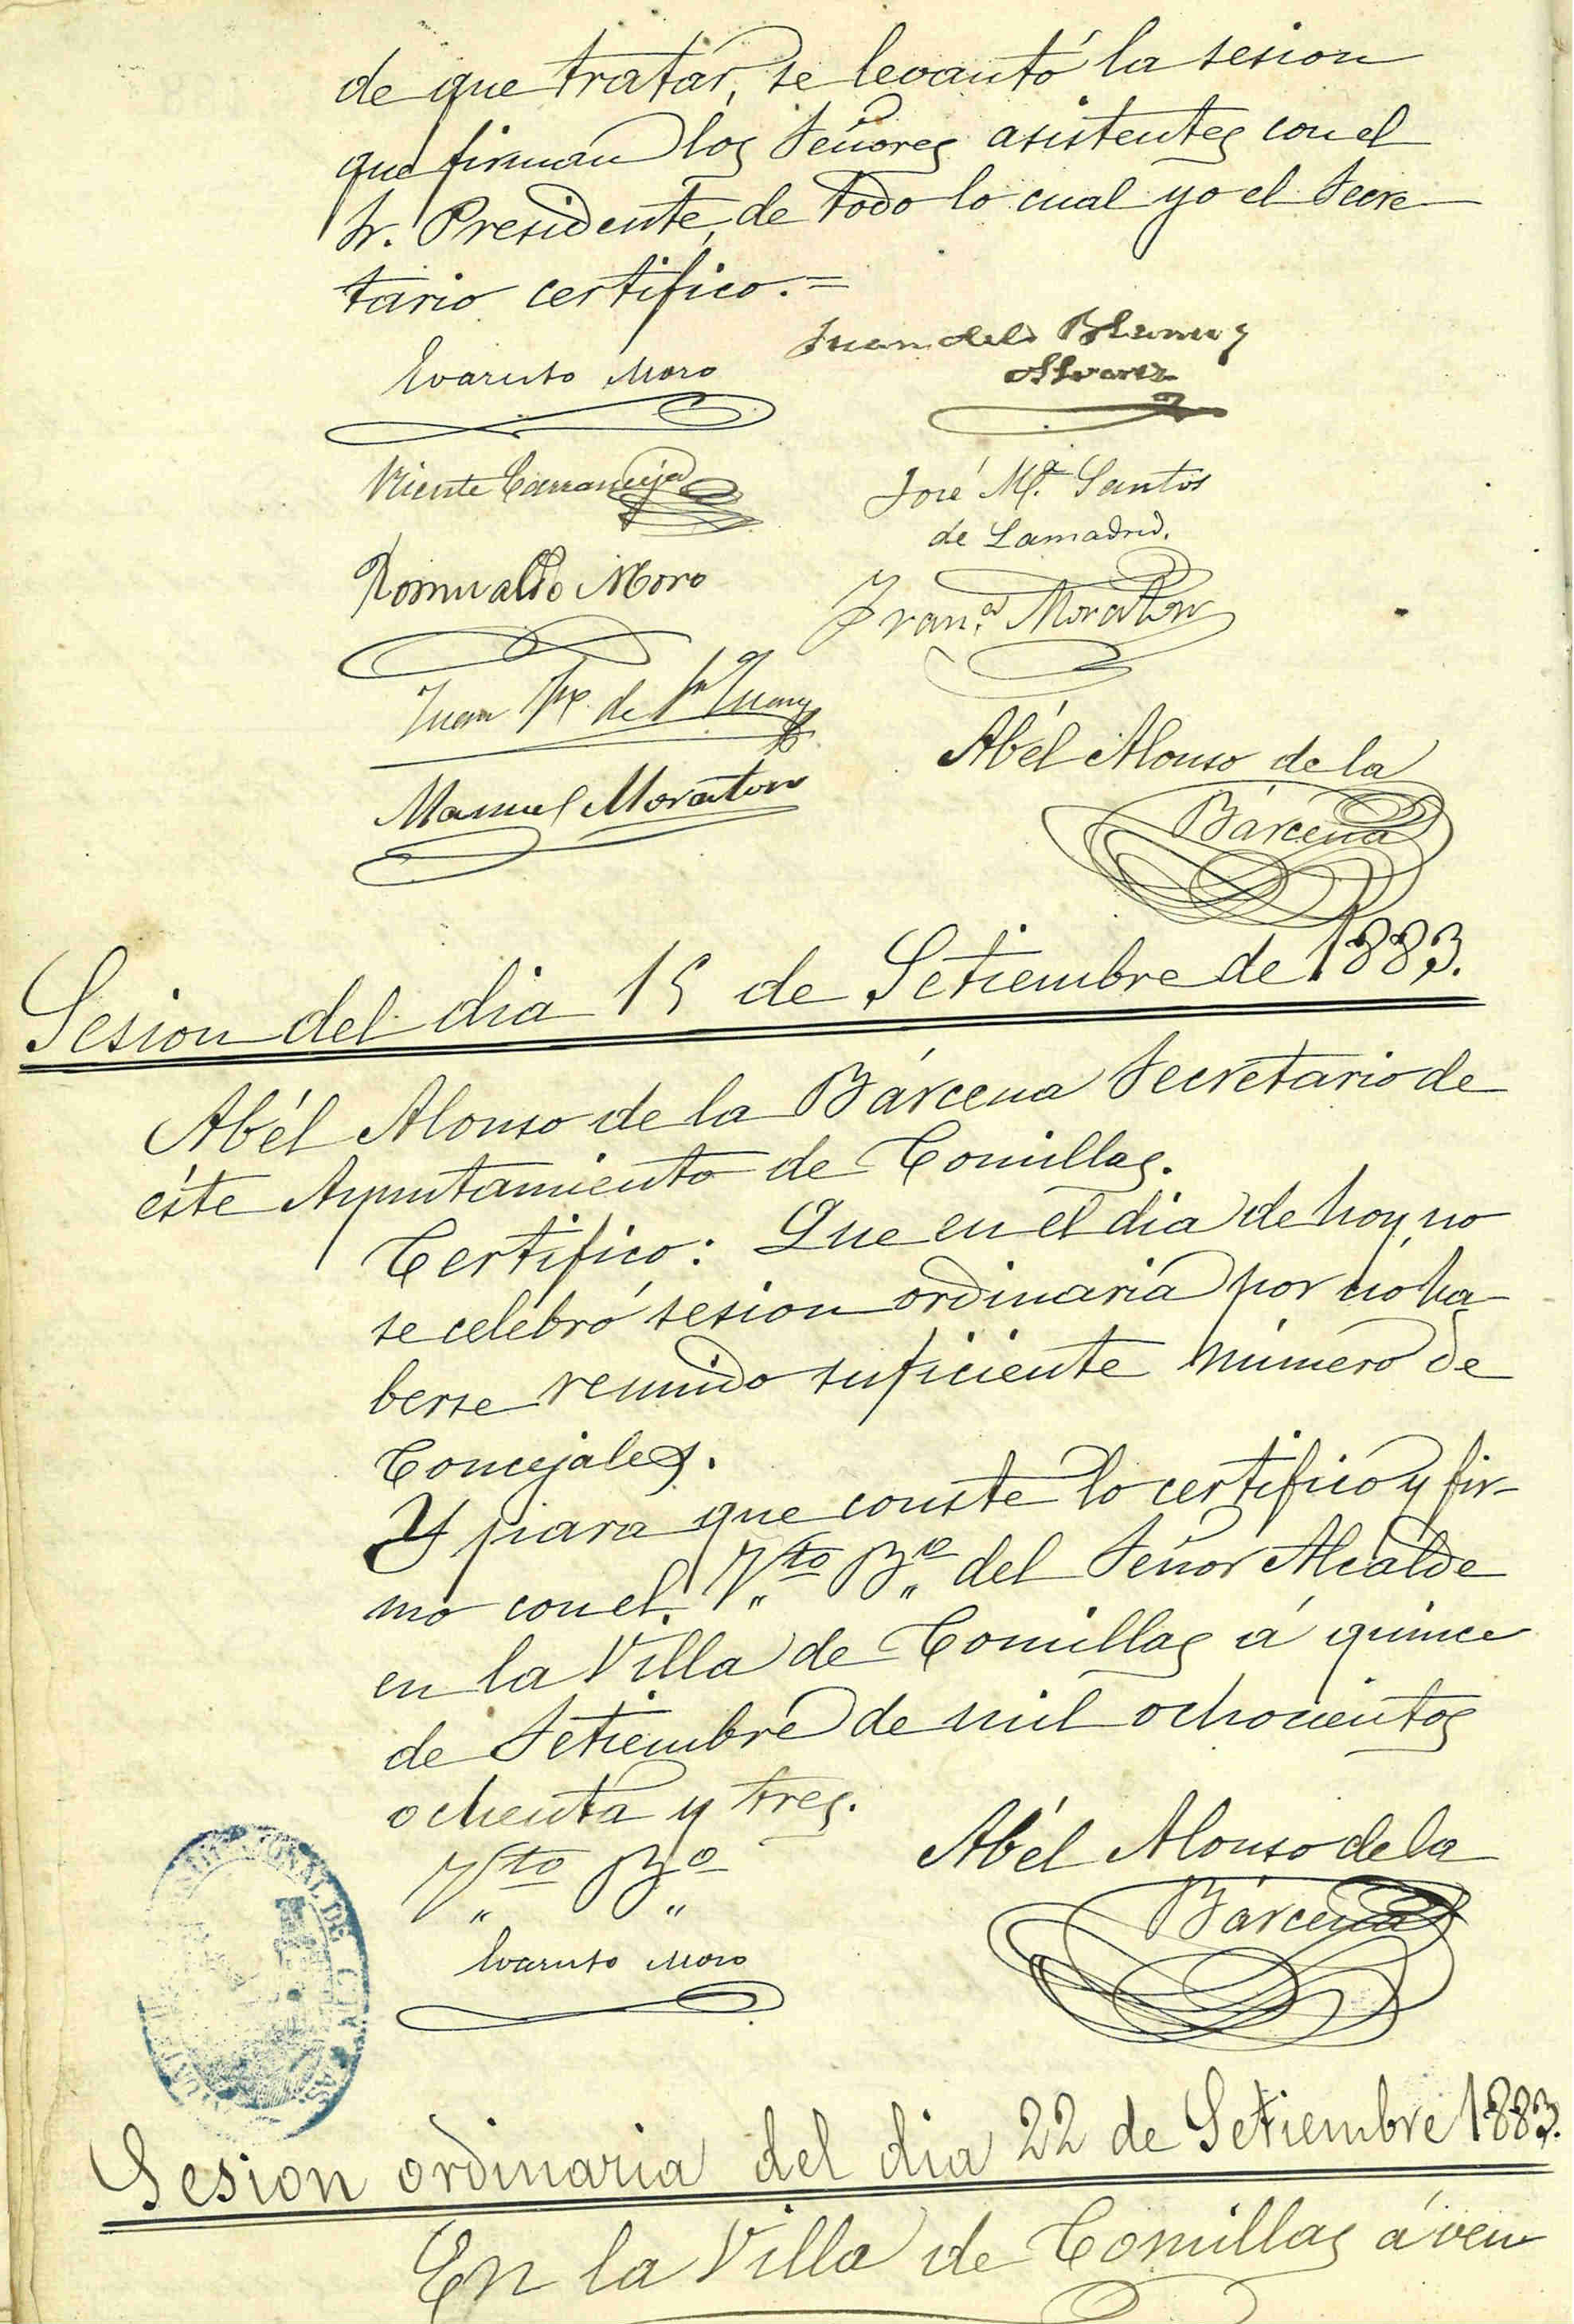 de que tratar, se levantó la sesion
que firman los Señores asistentes con el
Sr. Presidente, de todo lo cual yo el Secre
tario certifico.=
Evaristo Moro
Juan del Blanco y
Alvarez
Vicente
José Mª. Santos
de Lamadrid.
Romualdo Moro
Franco. Moraton
Juan de
Manuel Moraton
Abél Alonso de la
Bárcena
Sesion del dia 15 de Setiembre de 1883.
Abél Alonso de la Bárcena Secretario de
éste Ayuntamiento de Comillas.
Certifico: Que en el dia de hoy, no
se celebró sesion ordinaria por no ha
berse reunido suficiente número de
Concejales.
Y para que conste lo certifico y fir-
mo con el Vto Bo del Señor Alcalde
en la Villa de Comillas á quince
de Setiembre de mil ochocientos
ochenta y tres.
Vto Bo
Abél Alonso de la
Bárcena
Evaristo Moro
Sesion ordinaria del dia 22 de Setiembre 1883.
En la Villa de Comillas á vein